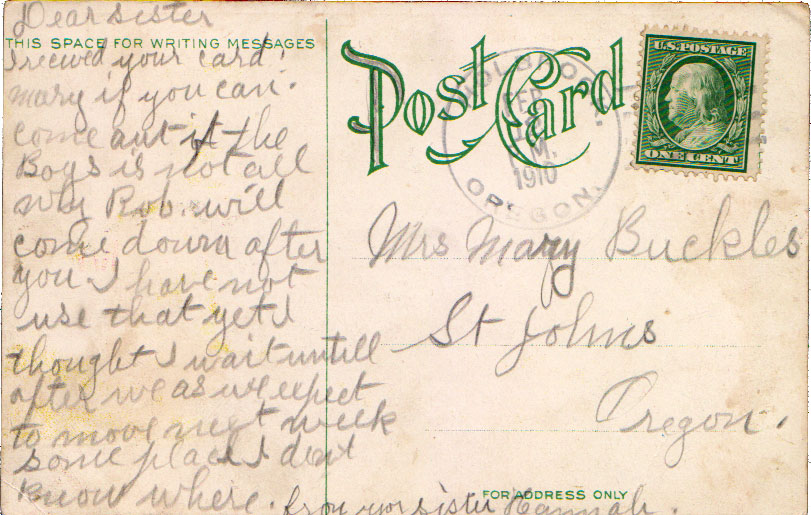 Dear sister
THIS SPACE FOR WRITING MESSAGES
I recived your card.
Mary if you can.
come out if the
Boys is not all
Rob. will
come down after
you I have not
use that yet I
thought I wait untill
after we as we expect
to move next week
some place I dont
know where. from your sister Hannah.
Post Card
HOLBROOK
FEB
M.
1910
OREGON.
U.S. POSTAGE
ONE CENT
Mrs Mary Buckles
St Johns
Oregon.
FOR ADDRESS ONLY